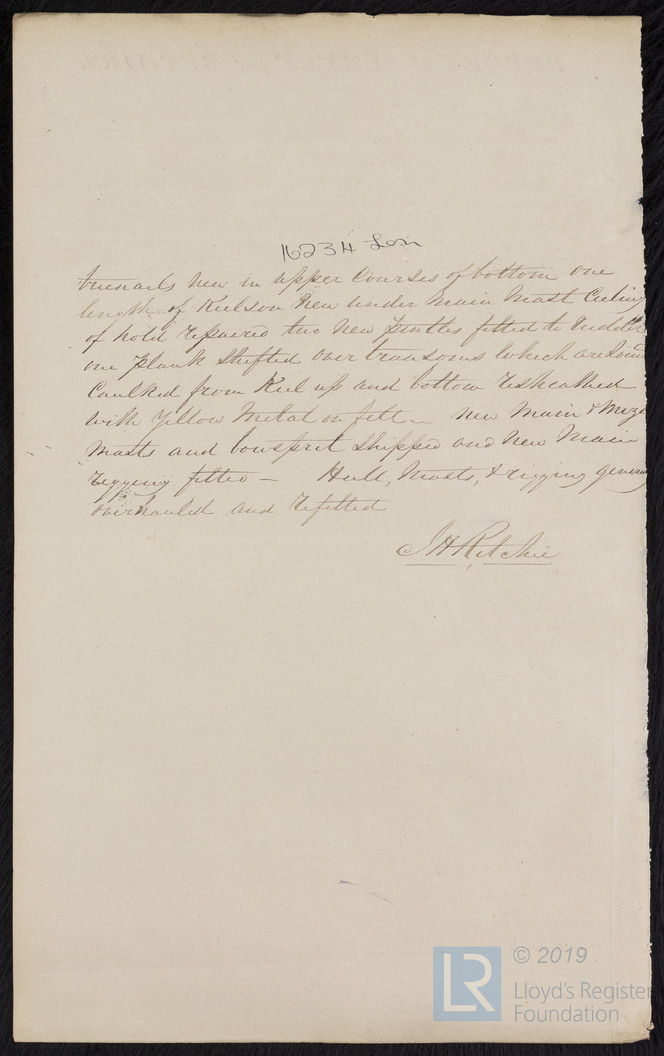 16234 Lon
treenails new in upper Courses of bottom one
length of Keelson New under Main Mast Ceiling
of hold repaired two New fitted to Rudder
one plank shifted over transoms which are
Caulked from Keel up and bottom resheathed
with Yellow Metal on felt – new Main & Mize
Masts and bowsprit shipped and New Main
rigging fitted – Hull, Masts, & rigging genera
overhauled and refitted
J H Ritchie
© 2019
LR
Lloyd's Register
Foundation